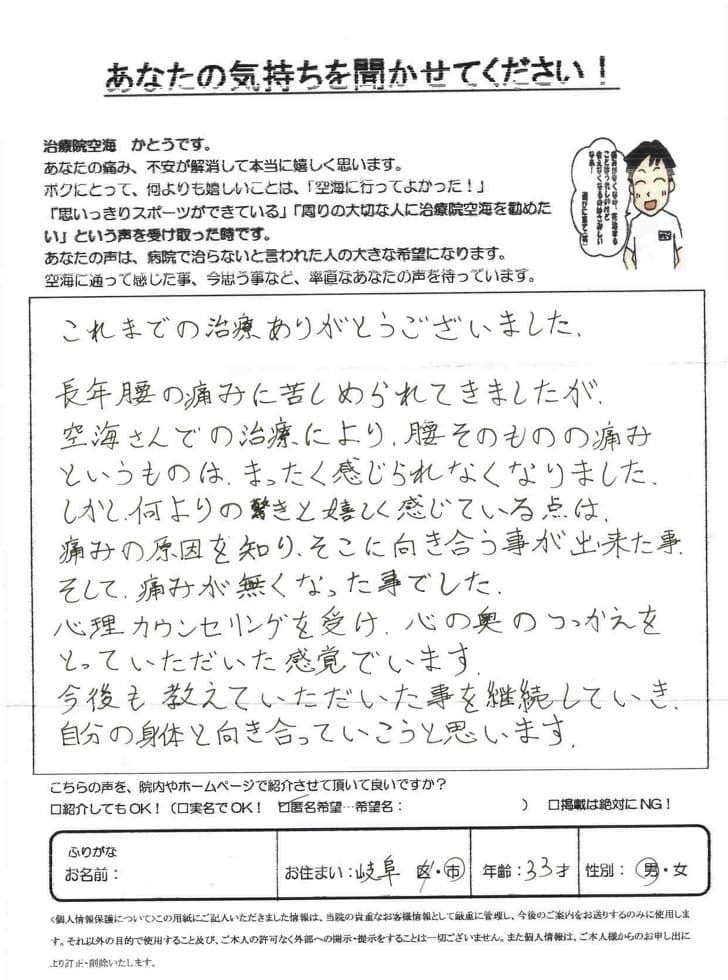 あなたの気持ちを聞かせてください！
治療院空海　かとうです。
あなたの痛み、不安が解消して本当に嬉しく思います。
ボクにとって、何よりも嬉しいことは、「空海に行ってよかった！」
「思いっきりスポーツができている」「周りの大切な人に治療院空海を勧めた
い」という声を受け取った時です。
あなたの声は、病院で治らないと言われた人の大きな希望になります。
空海に通って感じた事、今思う事など、率直なあなたの声を待っています。
これまでの治療ありがとうございました.
長年腰の痛みに苦しめられてきましたが.
空海さんでの治療により.腰そのものの痛み
というものは.まったく感じられなくなりました.
しかし.何よりの驚きと嬉しく感じている点は.
痛みの原因を知り.そこに向き合う事が出来た事.
そして.痛みが無くなった事でした.
心理カウンセリングを受け.心の奥のつっかえを
とっていただいた感覚でいます.
今後も教えていただいた事を継続していき.
自分の身体と向き合っていこうと思います.
こちらの声を、院内やホームページで紹介させて頂いて良いですか？
□紹介してもOK！（□実名でOK！　☑匿名希望…希望名：　　　　　　）　□掲載は絶対にNG！
ふりがな
お名前：
お住まい：岐阜 区・市
年齢：33才
性別：男・女
<個人情報保護について>この用紙にご記入いただきました情報は、当院の貴重なお客様情報として厳重に管理し、今後のご案内をお送りするのみに使用しま
す。それ以外の目的で使用すること及び、ご本人の許可なく外部への開示・提示をすることは一切ございません。また個人情報は、ご本人様からのお申し出に
より訂正・削除いたします。